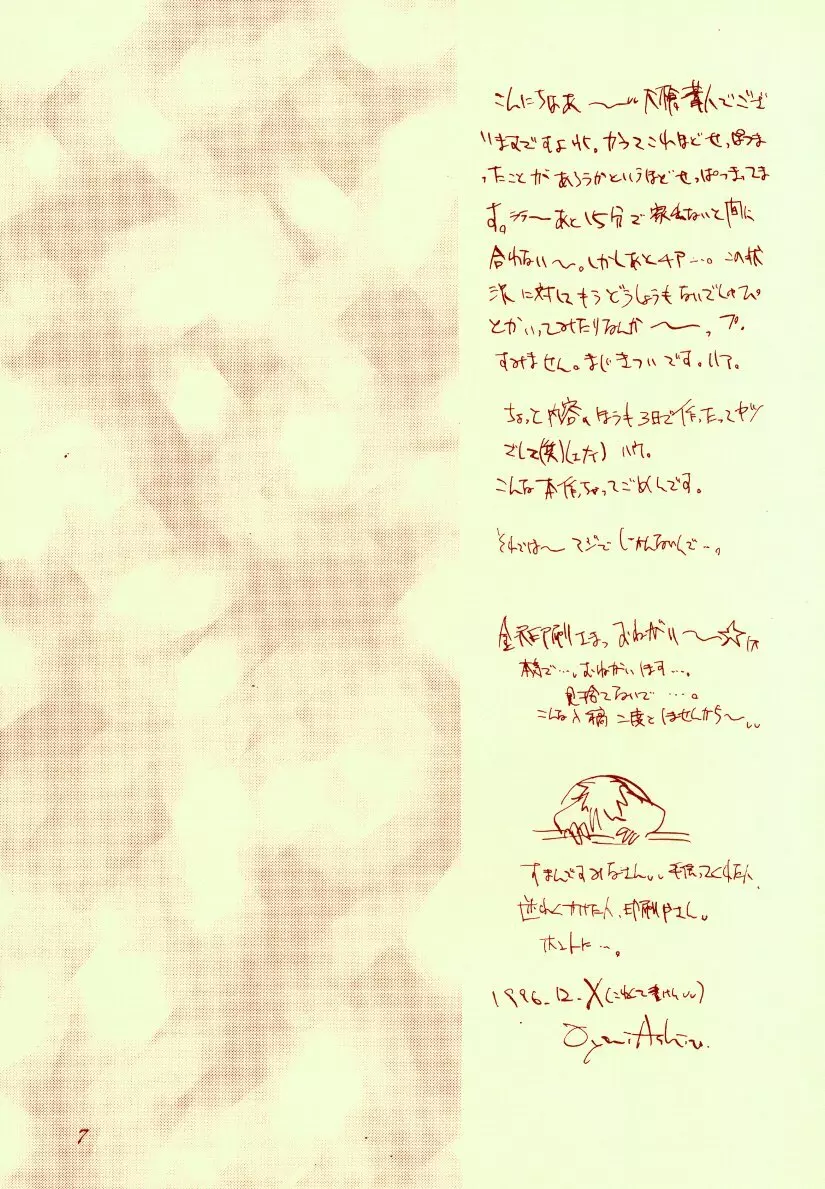 こんにちなあ〜〜 大槍葦人でござ
いますですよれ。かつてこれほどせっぱつま
ったことがあろうかというほどせっぱつまってま
す。うう〜あと15分で家出ないと間に
合わない〜。しかしあと4P…。この状
況に対してもうどうしようもないでしゅぴ
とかいってみたりなんか〜〜、プ。
すみません。まじきついです。ハア。
ちょっと内容のほうも3日で作ったってヤツ
でして(笑)(エナイ) ハウ。
こんな本作っちゃってごめんです。
それでは〜 マジで じかんないんで…。
金沢印刷さまっ おねがい〜〜☆
…。おねがいします…。
見捨てないで …。
こんな入稿 二度としませんから〜
すまんですみなさん 手伝ってくれた人、
迷わくかけた人、印刷屋さん。
ホントに…。
1996.12.X(こわくて書けん)
Oyari Ashito.
7